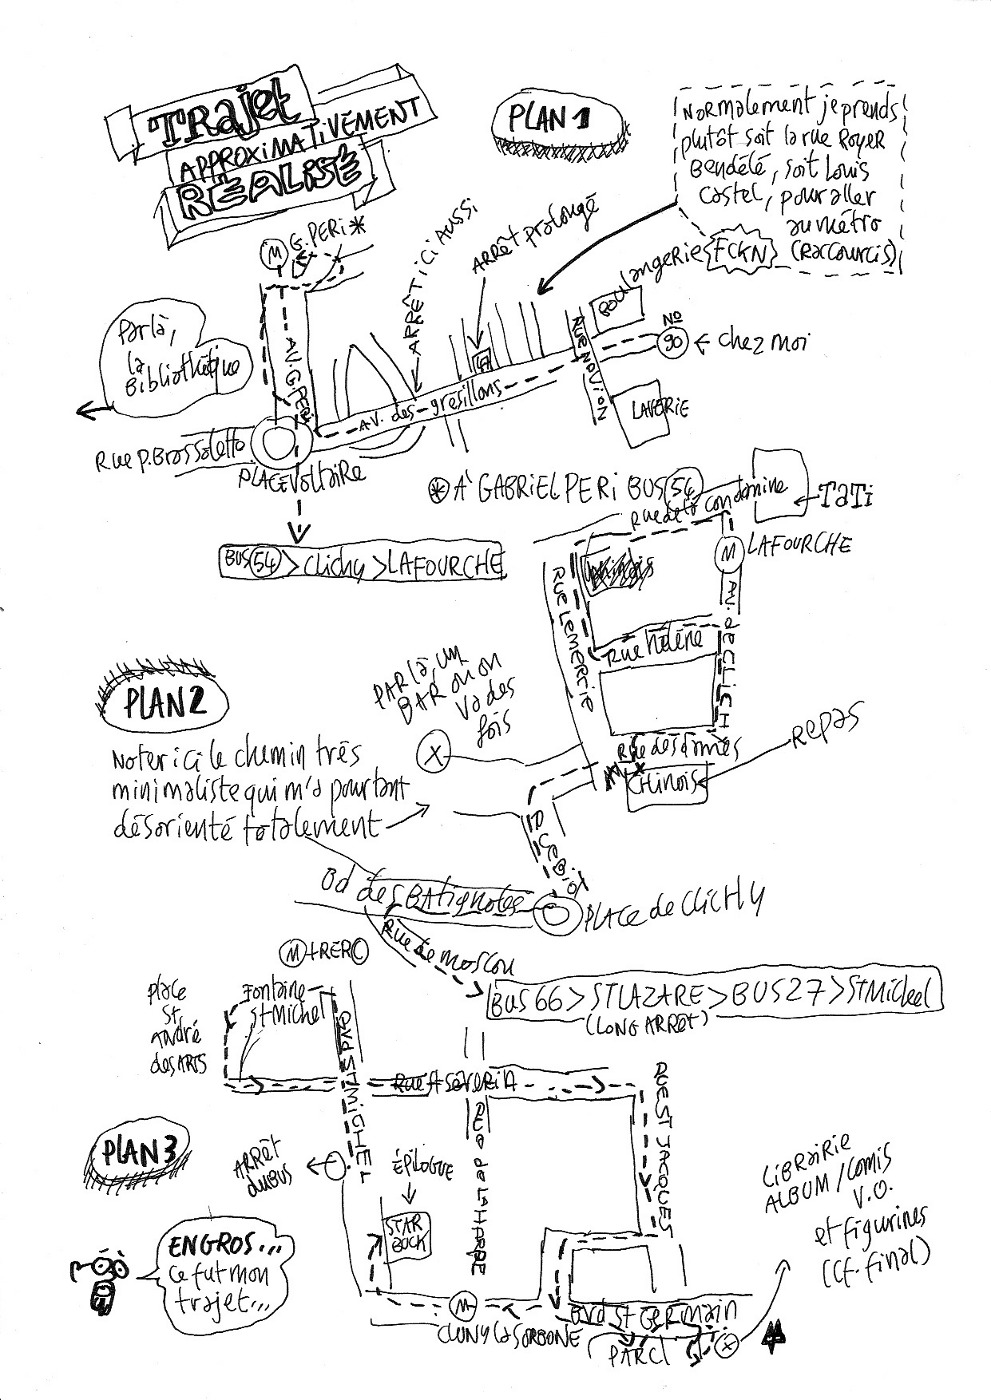 TRajet
APPROXIMATIVEMENT
RÉALISÉ
PLAN 1
Normalement je prends
plutôt soit la rue Royer
Bendélé, soit Louis
Castel, pour aller
au métro
FCKN (Raccourcis)
M G. PERI *
Parlà,
la
Bibliothèque
AV. G. PERI
ARRÊT ICI AUSSI
ARRÊT prolongé
BOULANGERIE
RUE NOVION
N°
90
← chez moi
LAVERIE
AV. des gresillons
Rue P. Brossolette
PLACE VOLTAIRE
* A GABRIEL PERI BUS 54
BUS 54 > Clichy > LAFOURCHE
Rue de la condamine
TaTi
M LAFOURCHE
RUE LEMERCIE
AV. de CLICH
Rue Hélène
Rue des dames
Repas
CHINOIS
PLAN 2
PAR là un
BAR où on
va des
fois
X
Noter ici le chemin très
minimaliste qui m'a pourtant
désorienté totalement
Bd des BAtignoles
PLACE de CLICHY
Rue de Moscou
BUS 66 > ST LAZARE > BUS 27 > ST Mickel
(LONG ARRÊT)
M + RER C
place
St
ANDRÉ
des ARTS
Fontaine
St Michel
BVD ST MICHEL
Rue St SéVERIN
RUE ST JACQUES
RUE de LA HARPE
PLAN 3
ARRÊT
du BUS
ÉPILOGUE
STAR
BUCK
EN GROS...
Ce fut mon
trajet...
M
CLUNY LA SORBONNE
BVD ST GERMAIN
PAR CI
X
LIBRAIRIE
ALBUM / Comis
V.O.
et figurines
(cf. final)